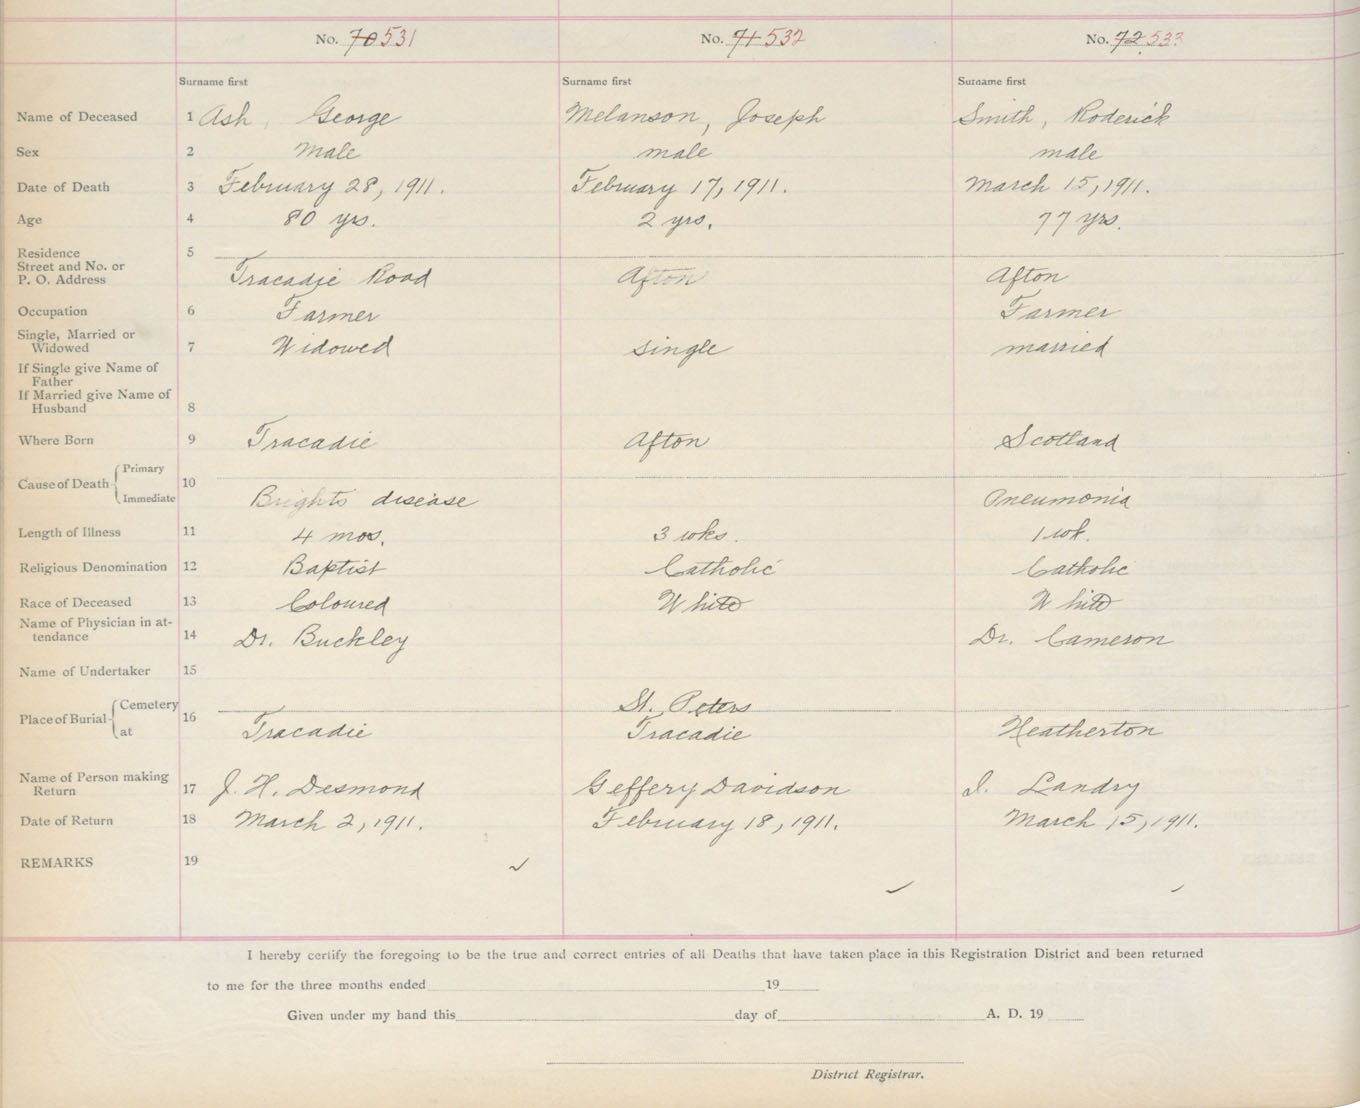 No. 70 531 No. 71 532 No. 72 533
Surname first Surname first Surname first
Name of Deceased 1 Ash, George Melanson, Joseph Smith, Roderick
Sex 2 Male male male
Date of Death 3 February 28, 1911. February 17, 1911. March 15, 1911.
Age 4 80 yrs. 2 yrs. 77 yrs.
Residence 5
Street and No. or
P. O. Address Tracadie Road Afton Afton
Occupation 6 Farmer Farmer
Single, Married or
Widowed 7 Widowed single married
If Single give Name of
Father
If Married give Name of
Husband 8
Where Born 9 Tracadie Afton Scotland
Cause of Death Primary 10
Immediate Brights disease Pneumonia
Length of Illness 11 4 mos. 3 wks. 1 wk.
Religious Denomination 12 Baptist Catholic Catholic
Race of Deceased 13 Coloured White White
Name of Physician in at-
tendance 14 Dr. Buckley Dr. Cameron
Name of Undertaker 15
Place of Burial Cemetery 16 St. Peters
at Tracadie Tracadie Heatherton
Name of Person making
Return 17 J. H. Desmond Geffery Davidson I. Landry
Date of Return 18 March 2, 1911. February 18, 1911. March 15, 1911.
REMARKS 19
I hereby certify the foregoing to be the true and correct entries of all Deaths that have taken place in this Registration District and been returned
to me for the three months ended 19
Given under my hand this day of A. D. 19
District Registrar.